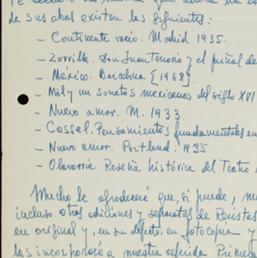 de sus años existen las siguientes:
— Continente vacío. Madrid 1935.
— Zorrilla. Don Juan Tenorio y el puñal de
— México. Barcelona [1968].
— Mil y un sonetos mexicanos del siglo XVI
— Nuevo amor. M. 1933.
— Cassel. Pensamientos fundamentales en
— Nuevo amor. Portland. 1935
— Olavarría. Reseña histórica del Teatro
Mucho le agradeceré que, si puede, m
incluso otras ediciones y separatas de
en original y, en su defecto, en fotocopia y
las incorporaré a nuestra referida Prime